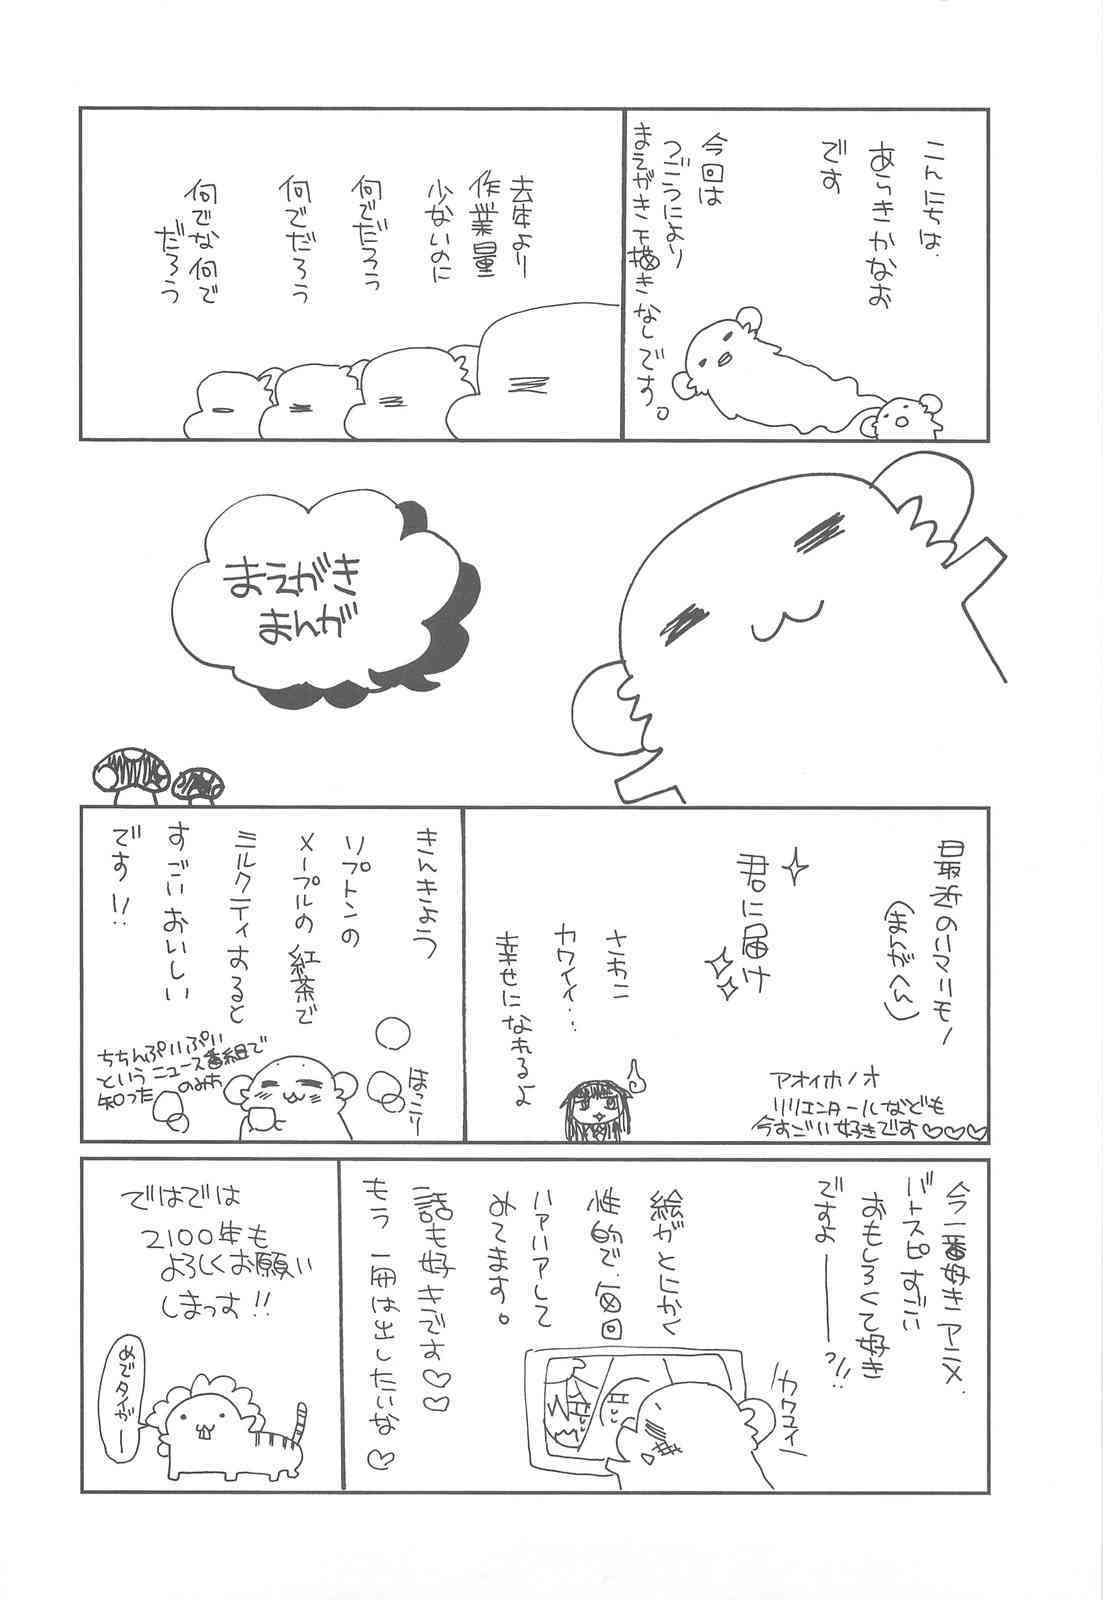 こんにちは
あらきかなお
です
今回は
つごうにより
まえがき下描きなしです。
去年より
作業量
少ないのに
何でだろう
何でだろう
何でな何で
だろう
まえがき
まんが
最近のハマリモノ
(まんがへん)
君に届け
さわこ
カワイイ…
幸せになれるよ
アオイホノオ
リリエンタールなども
今すごい好きです♡♡♡
きんきょう
リプトンの
メープルの紅茶で
ミルクティすると
すごいおいしい
です!!
ちちんぷいぷい
というニュース番組で
のみち
知った
ほっこり
今一番好きアニメ
バトスピすごい
おもしろくて好き
ですよーーっ!!
絵がとにかく
性的で、毎回
ハァハアして
めてます。
一話も好きです♡♡
もう一冊は出したいな♡
カワユイー
ではでは
2100年も
よろしくお願い
しまっす!!
めでタイガー